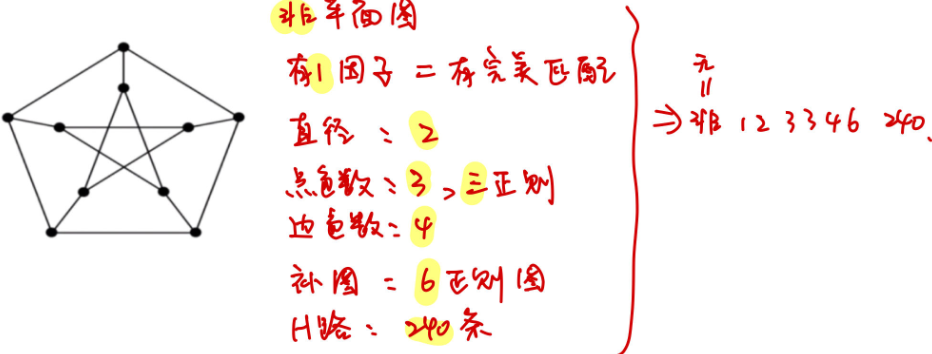 非平面图
有1因子 = 有完美匹配
直径：2
点色数：3，三正则
边色数：4
补图：6正则图
H路：240条
无
||
⇒ 非 1 2 3 3 4 6 240.